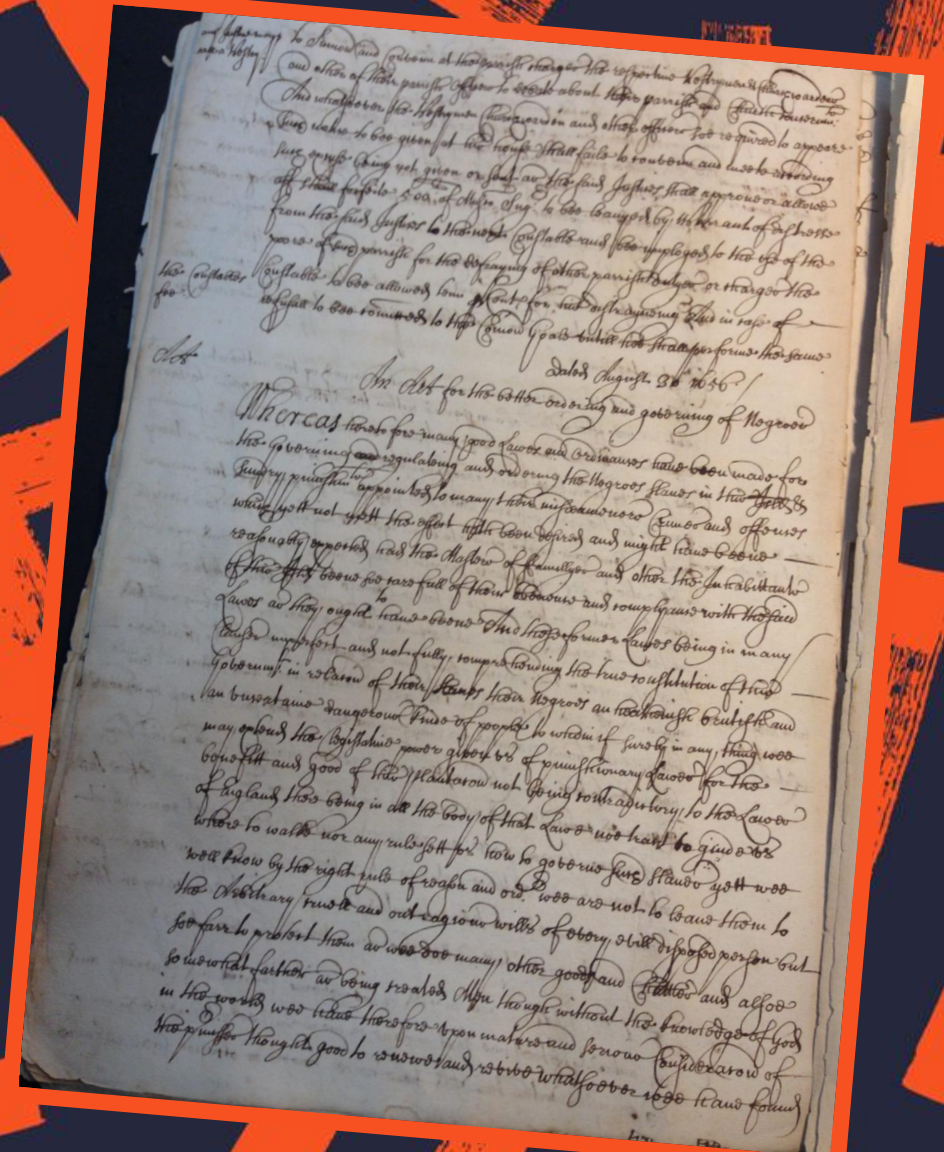 to Summon and convene at the parrish charge the respective Vestrymen & Churchwardens
and other of their parrish officers to
And whatsoever the Vestrymen Churchwarden and other officers soe required to appeare
being not given or sent as the said Justices shall approve or allowe
of shall forfeite 500 of Musc. Sug. to bee leavyed by Warrant of distresse
from the said Justices to the next Constable and bee imployed to the use of the
poore of parrish for the defraying of other parrish or charges the
the Constables
fee
Constable to bee allowed tenn p Cent for his distrayneing And in case of
refusall to bee comitted to the Comon Goale untill hee shall performe the same
dated August
Act
An Act for the better ordering and governing of Negroes
Whereas heretofore many good Lawes and Ordinances have been made for
the governing and regulateing and ordering the Negroes Slaves in this
punishmts appointed to many their misdemeanors Crimes and offences
which yett not mett the effect hath been desired and might have beene
reasonably expected had the Masters of Familyes and other the Inhabitants
of this beene soe carefull of their obedience and complyance with the said
Lawes as they ought to have beene And these former Lawes being in many
clauses imperfect and not fully comprehending the true constitution of this
Governmt in relacon of their Slaves their Negroes an heathenish brutish and
an uncertaine dangerous kinde of people to whom if surely in any thing wee
may extend the Legislative power given us of punishionary Lawes for the
benefitt and good of this plantacon not being contradictory to the Lawes
of England there being in all the body of that Lawe noe tract to guide us
where to walke nor any rule sett us how to governe such Slaves yett wee
well know by the right rule of reason and ordr wee are not to leave them to
the Arbitrary cruell and outragious wills of every evill disposed person but
soe farr to protect them as wee doe many other goods and Chattles and alsoe
somewhat farther as being created Men though without the knowledge of God
in the world wee have therefore upon mature and serious Consideracon of
the premisses thought good to renewe and revive whatsoever wee have found